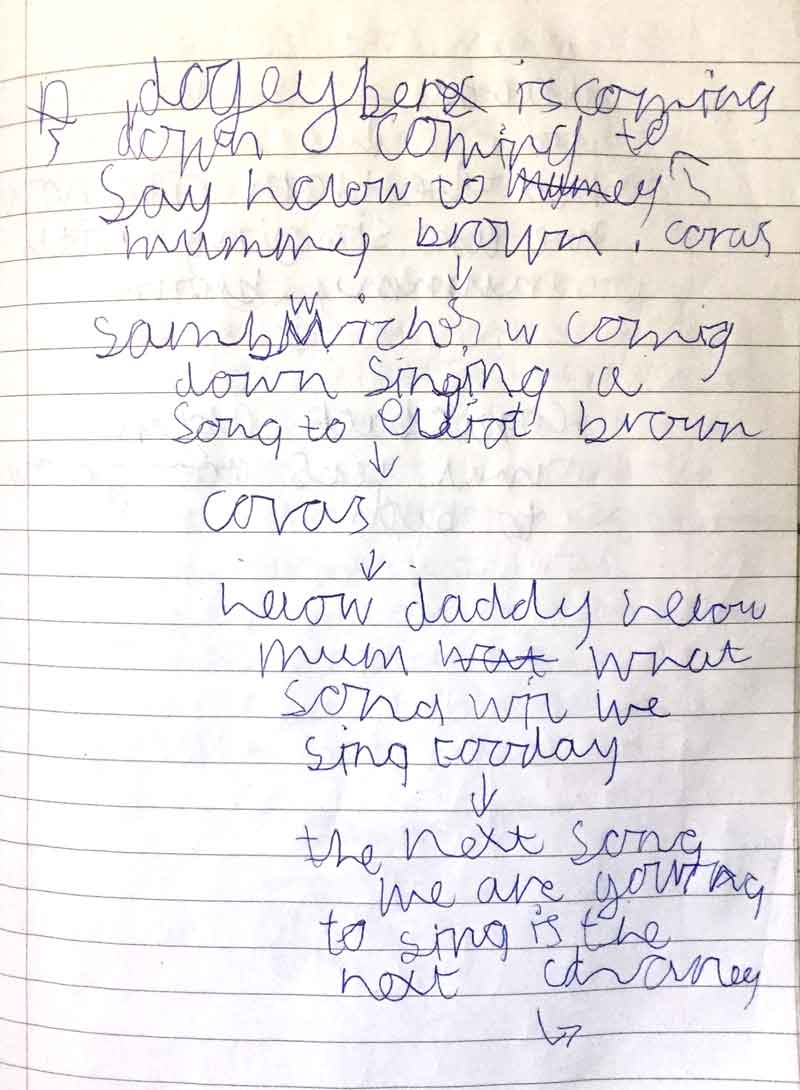 dogeyberx is coming
down coming to
Say helow to mumey
mummy brown. coras
sambwich wil comig
down singing a
Song to elliot brown
coras
helow daddy helow
mum wat what
song wil we
sing tooday
the next song
we are going
to sing is the
next